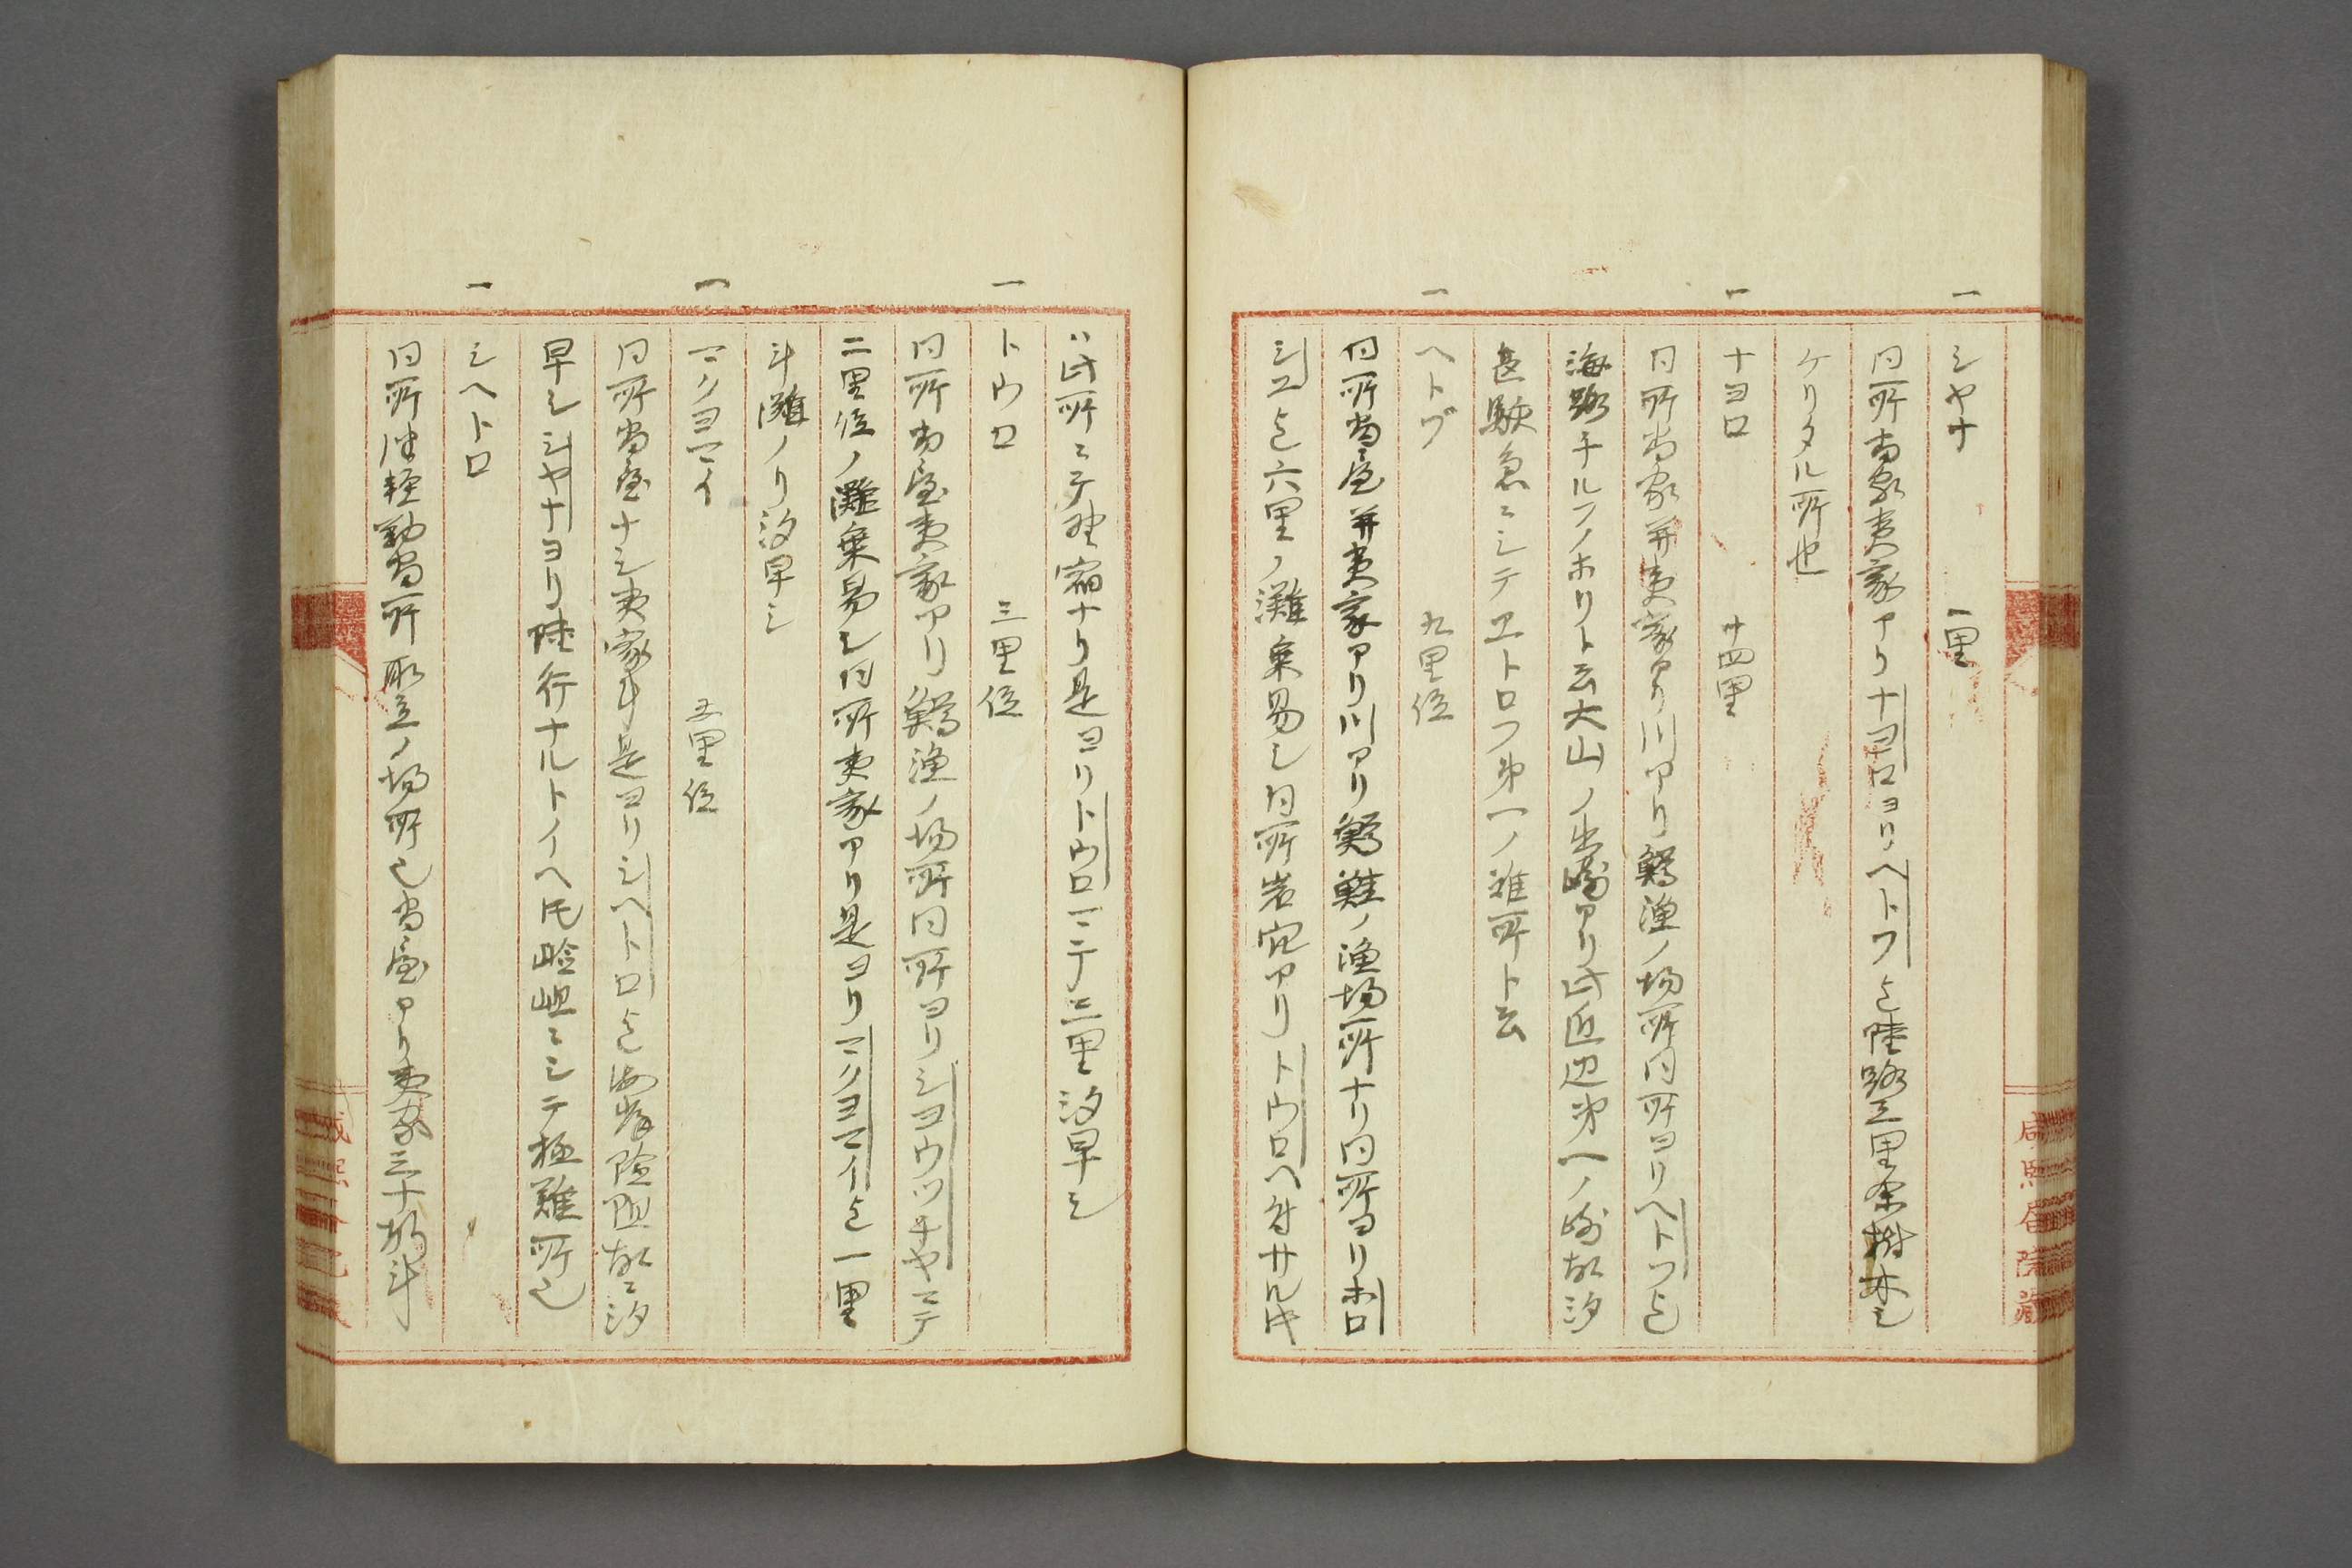 一 シヤナ 一里
同所番家夷家アリナヨロヨリヘトフ迄陸路三里余樹木シ
ケリタル所也
一 ナヨロ 廿四里
同所番家并夷家アリ川アリ鱒漁ノ場所同所ヨリヘトフ迄
海路チルフノホリト云大山ノ出崎アリ此近辺第一ノ崎故汐
甚駛急ニシテヱトロフ第一ノ難所ト云
一 ヘトブ 九里位
同所番屋并夷家アリ川アリ鱒鮭ノ漁場所ナリ同所ヨリホロ
シユ迄六里ノ灘乗易シ同所岩窟アリトウロヘ付サル時
ハ此所ニテ野宿ナリ是ヨリトウロマテ三里汐早シ
一 トウロ 三里位
同所番屋夷家アリ鱒漁ノ場所同所ヨリシヨウツチヤマテ
二里位ノ灘乗易シ同所夷家アリ是ヨリマクヨマイ迄一里
斗灘ノリ汐早シ
一 マクヨマイ 五里位
同所番屋ナシ夷家斗是ヨリシヘトロ迄海岸険阻故ニ汐
早シシヤナヨリ陸行ナルトイヘ圧嶮岨ニシテ極難所也
一 シヘトロ
同所津軽勤番所取立ノ場所也番屋アリ夷家三十斗
咸煕居院蔵